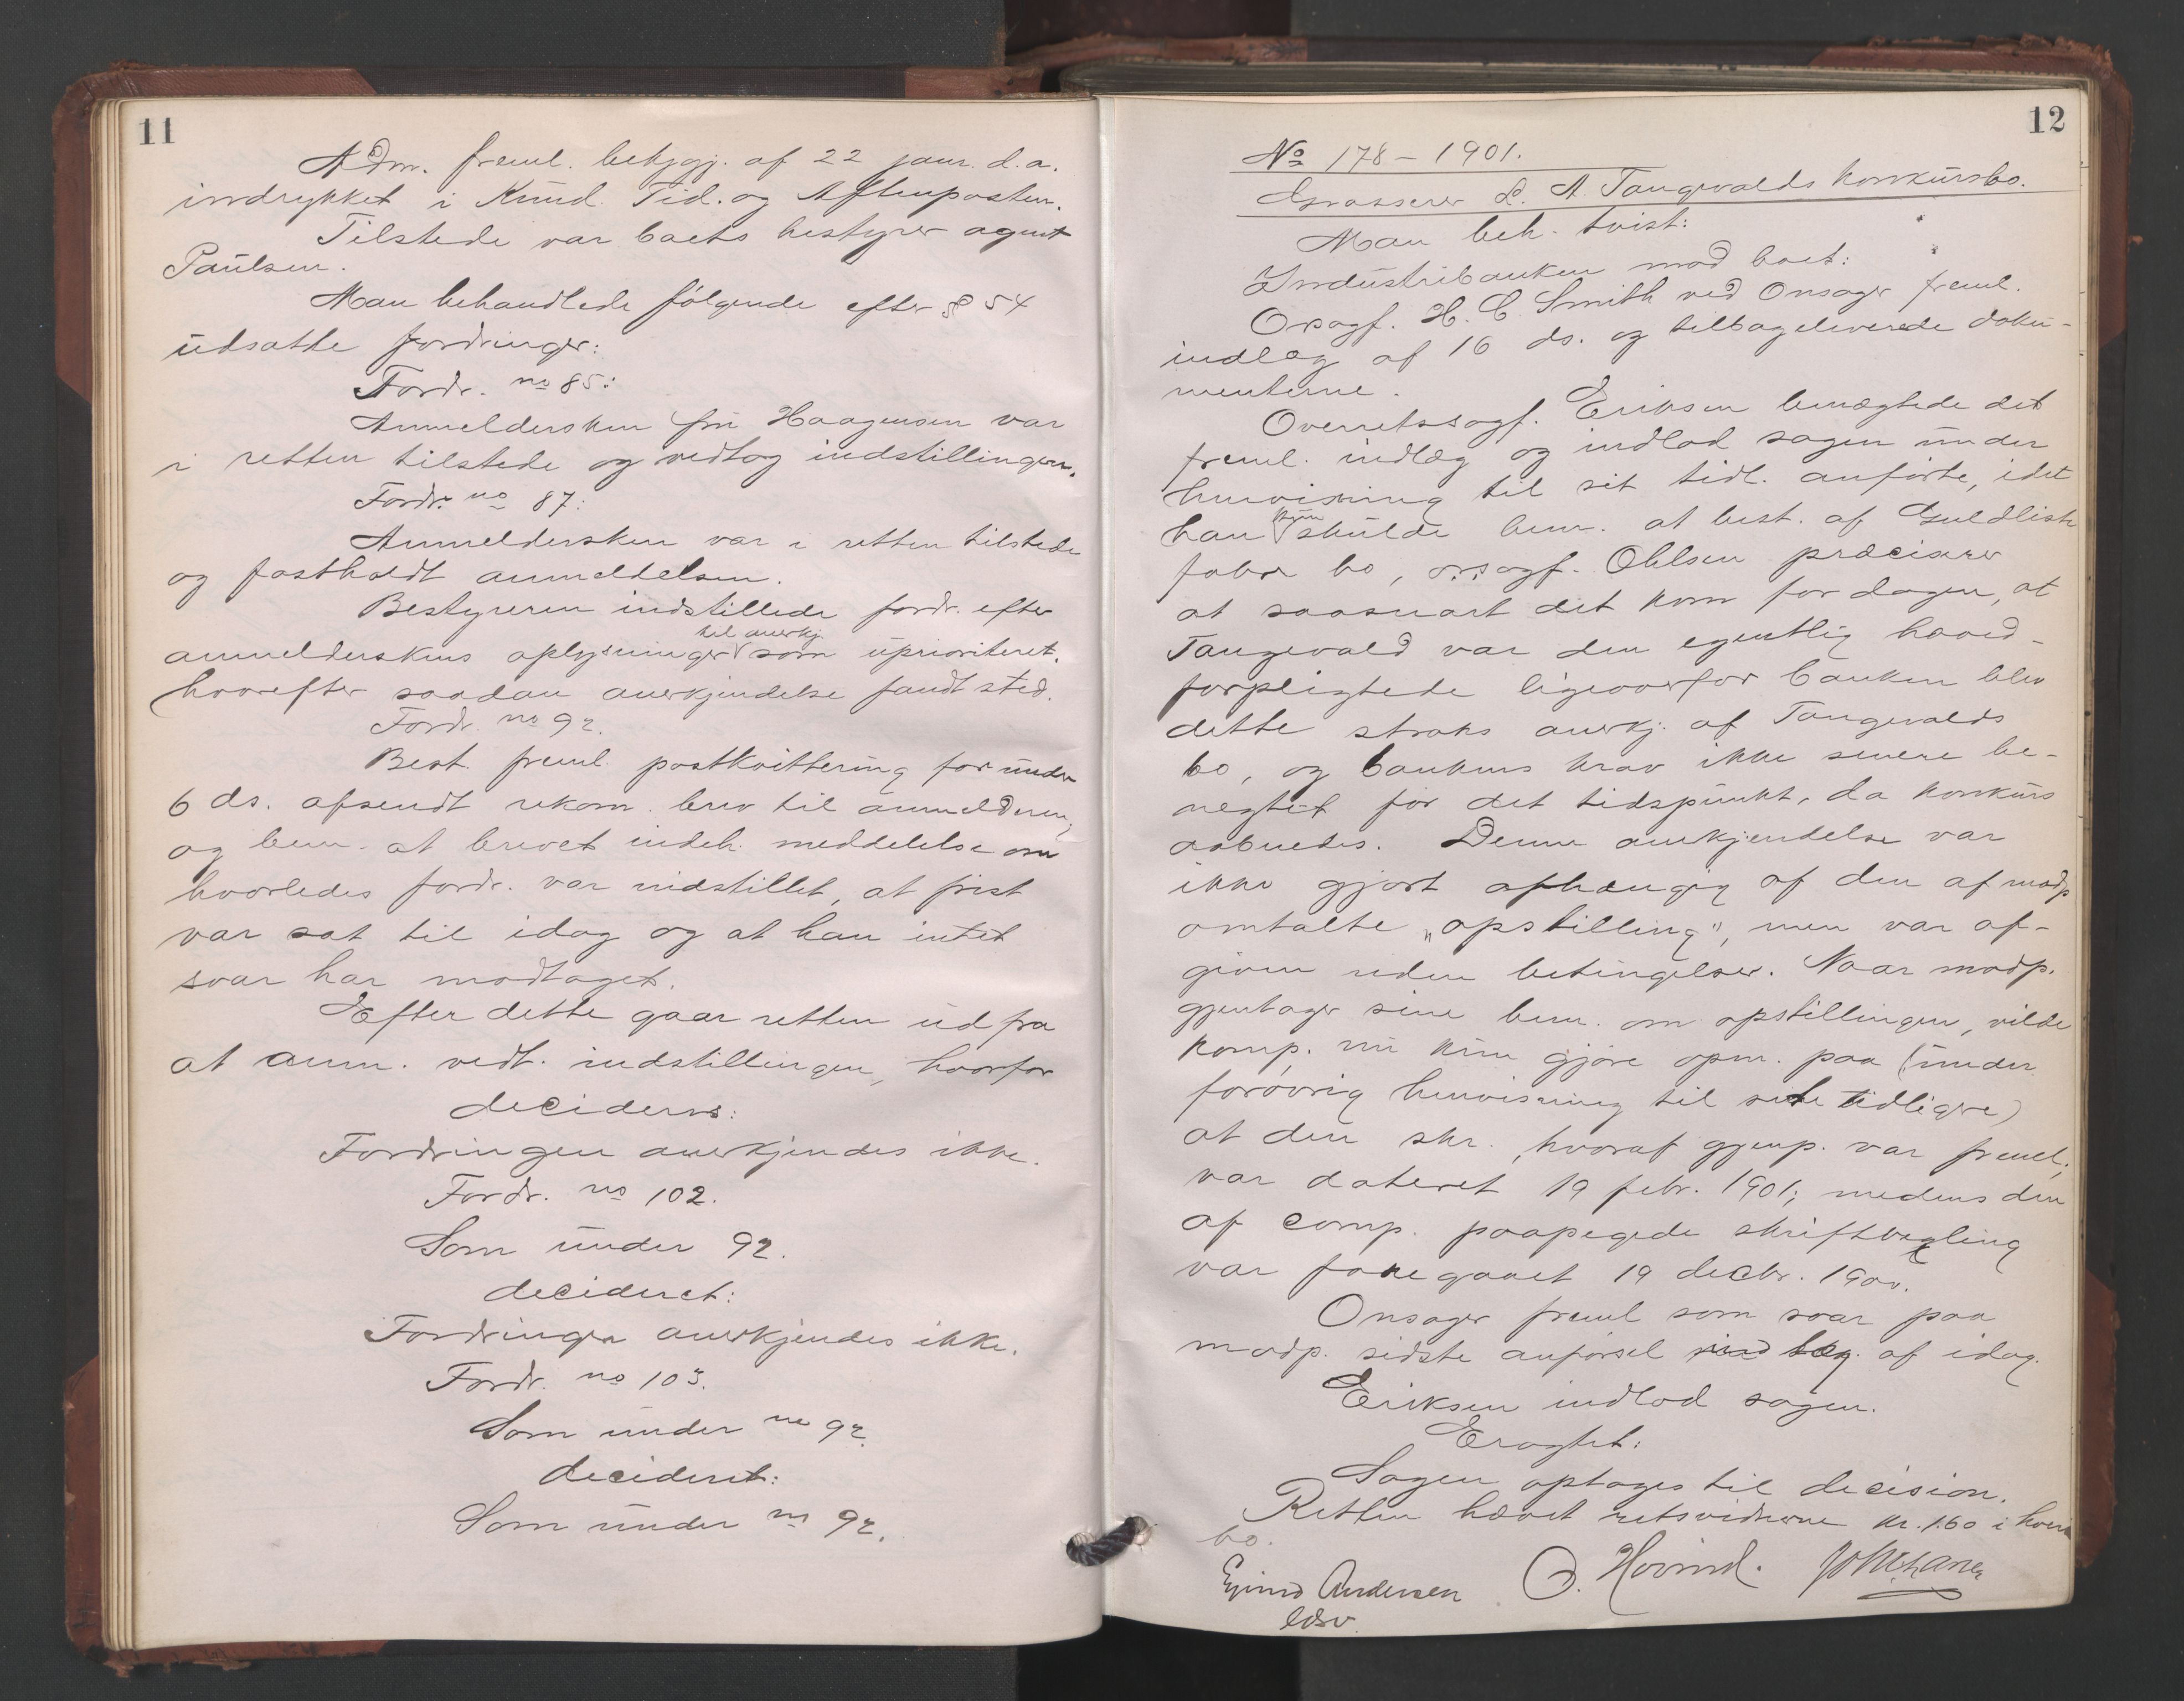 11
Adm. freml. bekjgj. af 22 janr. d.a.
indrykket i Kund. Tid. og Aftenposten.
Tilstede var boets bestyrer agent
Paulsen.
Man behandlede følgende efter § 54
udsatte fordringer:
Fordr. no 85:
Anmeldersken fru Haagensen var
i retten tilstede og vedtog indstillingen.
Fordr. no 87:
Anmeldersken var i retten tilstede
og fastholdt anmeldelsen.
Bestyreren indstillede fordr. efter
anmelderskens oplysninger til anerkj. som uprioriteret,
hvorefter saadan anerkjendelse fandt sted.
Fordr. no 92.
Best. freml. postkvittering for under
6 ds. afsendt rekom. brev til anmelderen,
og bem. at brevet indeh. meddelelse om
hvorledes fordr. var indstillet, at frist
var sat til idag og at han intet
svar har modtaget.
Efter dette gaar retten ud fra
at anm. vedt. indstillingen, hvorfor
decideres:
Fordringen anerkjendes ikke.
Fordr. no 102.
Som under 92.
decideret:
Fordringen anerkjendes ikke.
Fordr. no 103.
Som under no 92.
decideret:
Som under no 92.
12
No 178 - 1901.
Grosserer L. A. Tangevalds konkursbo.
Man beh. tvist:
Industribanken mod boet:
Orsagf. H. C. Smith ved Onsager freml.
indlæg af 16 ds. og tilbageleverede doku-
menterne.
Overretssagf. Eriksen benægtede det
freml. indlæg og indlod sagen under
henvisning til sit tidl. anførte, idet
han kun skulde bem. at best. af Guldliste
fabr bo, orsagf. Ohlsen præciserer
at saasnart det kom for dagen, at
Tangevald var den egentlig hoved-
forpligtede ligeoverfor banken blev
dette straks anerkj. af Tangevalds
bo, og bankens krav ikke senere be-
negtet før det tidspunkt, da konkurs
aabnedes. Denne anerkjendelse var
ikke gjort afhængig af den af modp
omtalte "opstilling", men var af-
given uden betingelser. Naar modp.
gjentager sine bem. om opstillingen, vilde
komp. nu kun gjøre opm. paa (under
forøvrig henvisning til sit tidligere)
at den skr., hvoraf gjenp. var freml.,
var dateret 19 febr. 1901; medens den
af comp. paapegede skriftvexling
var foregaaet 19 decbr. 1900.
Onsager freml som svar paa
modp. sidste anførsel indlæg. af idag.
Eriksen indlod sagen.
Eragtet:
Sagen optages til decision.
Retten hævet retsvidnerne kr. 1.60 i hvert
bo.
Ejvind Andersen
O. Hovind.
edsv.